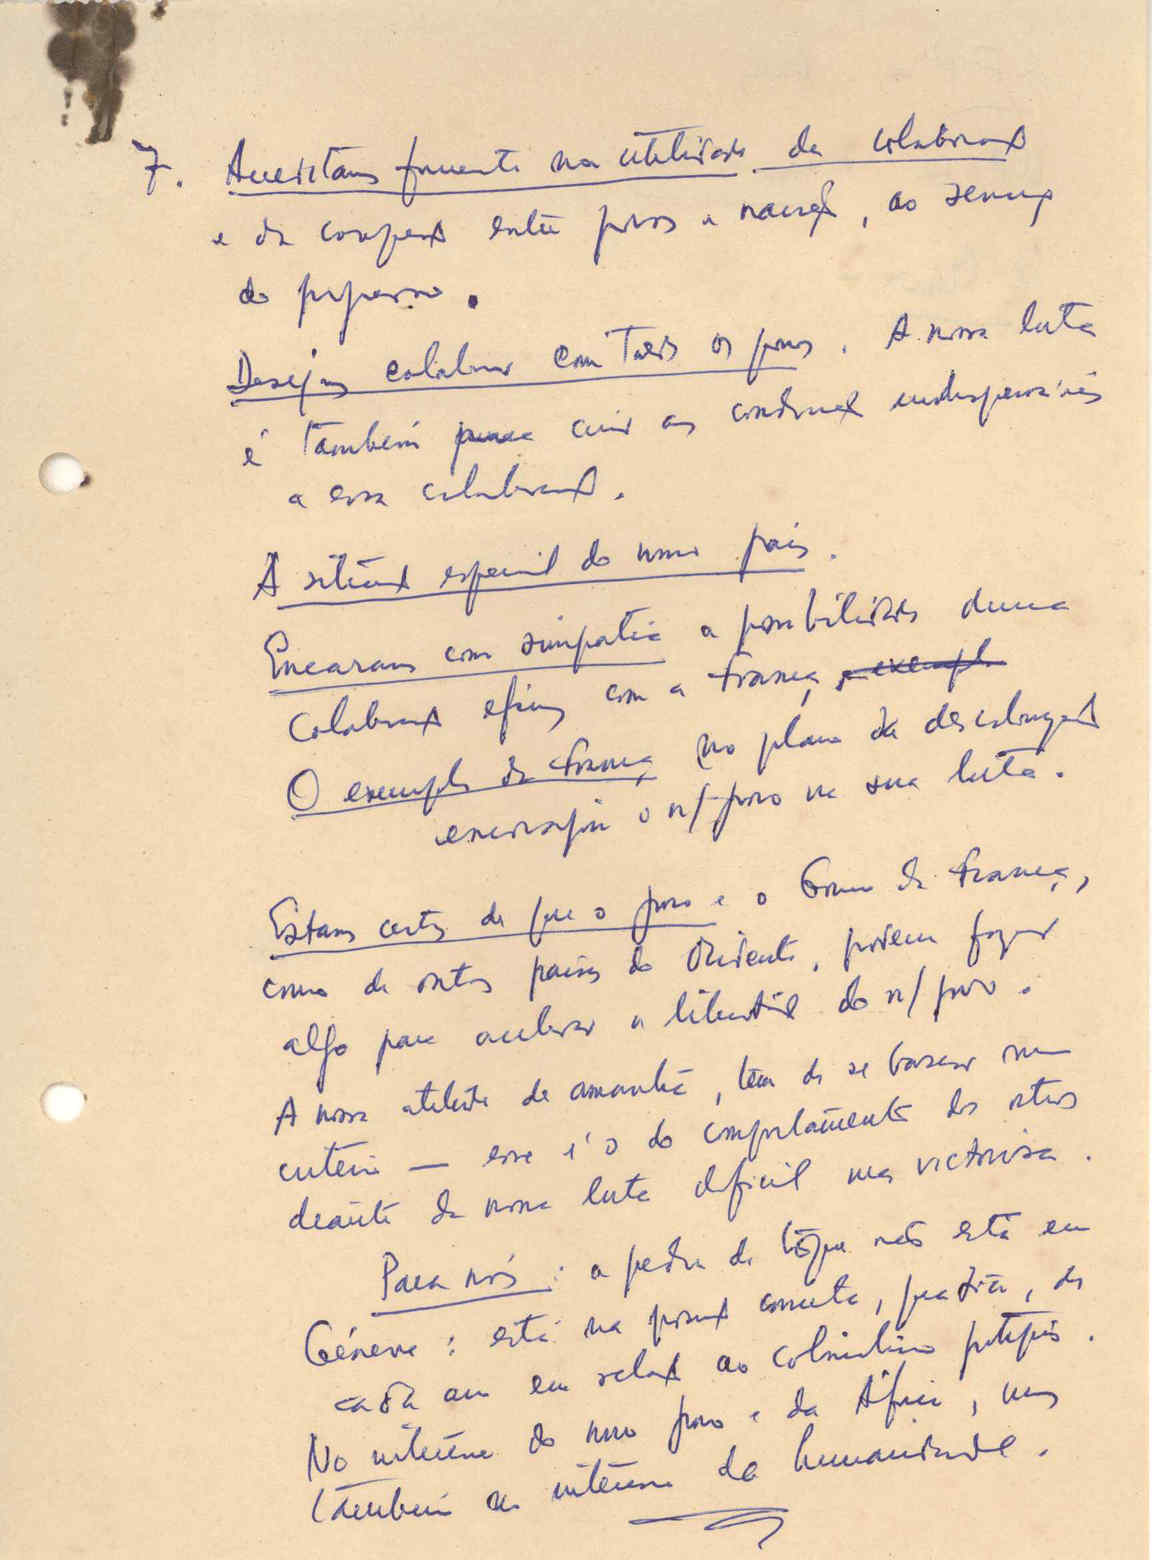 7. Acreditamos firmemente na utilidade da colaboração
e da cooperação entre povos e nações, ao serviço
do progresso.
Desejamos colaborar com todos os povos. A nossa luta
é também para criar as condições indispensáveis
a essa colaboração.
A situação especial do nosso país.
Encaramos com simpatia a possibilidade duma
colaboração eficaz com a França,
O exemplo da França no plano da descolonização
encoraja o n/ povo na sua luta.
Estamos certos de que o povo e o Governo da França,
como de outros países do Ocidente, podem fazer
algo para acelerar a libertação do n/ povo.
A nossa atitude de amanhã, tem de se basear num
critério — esse é o do comportamento dos outros
diante da nossa luta difícil mas victoriosa.
Para nós: a pedra de toque não está em
Géneve: está na posição concreta, prática, de
cada um em relação ao colonialismo português.
No interesse do nosso povo e da África, mas
também no interesse da humanidade.